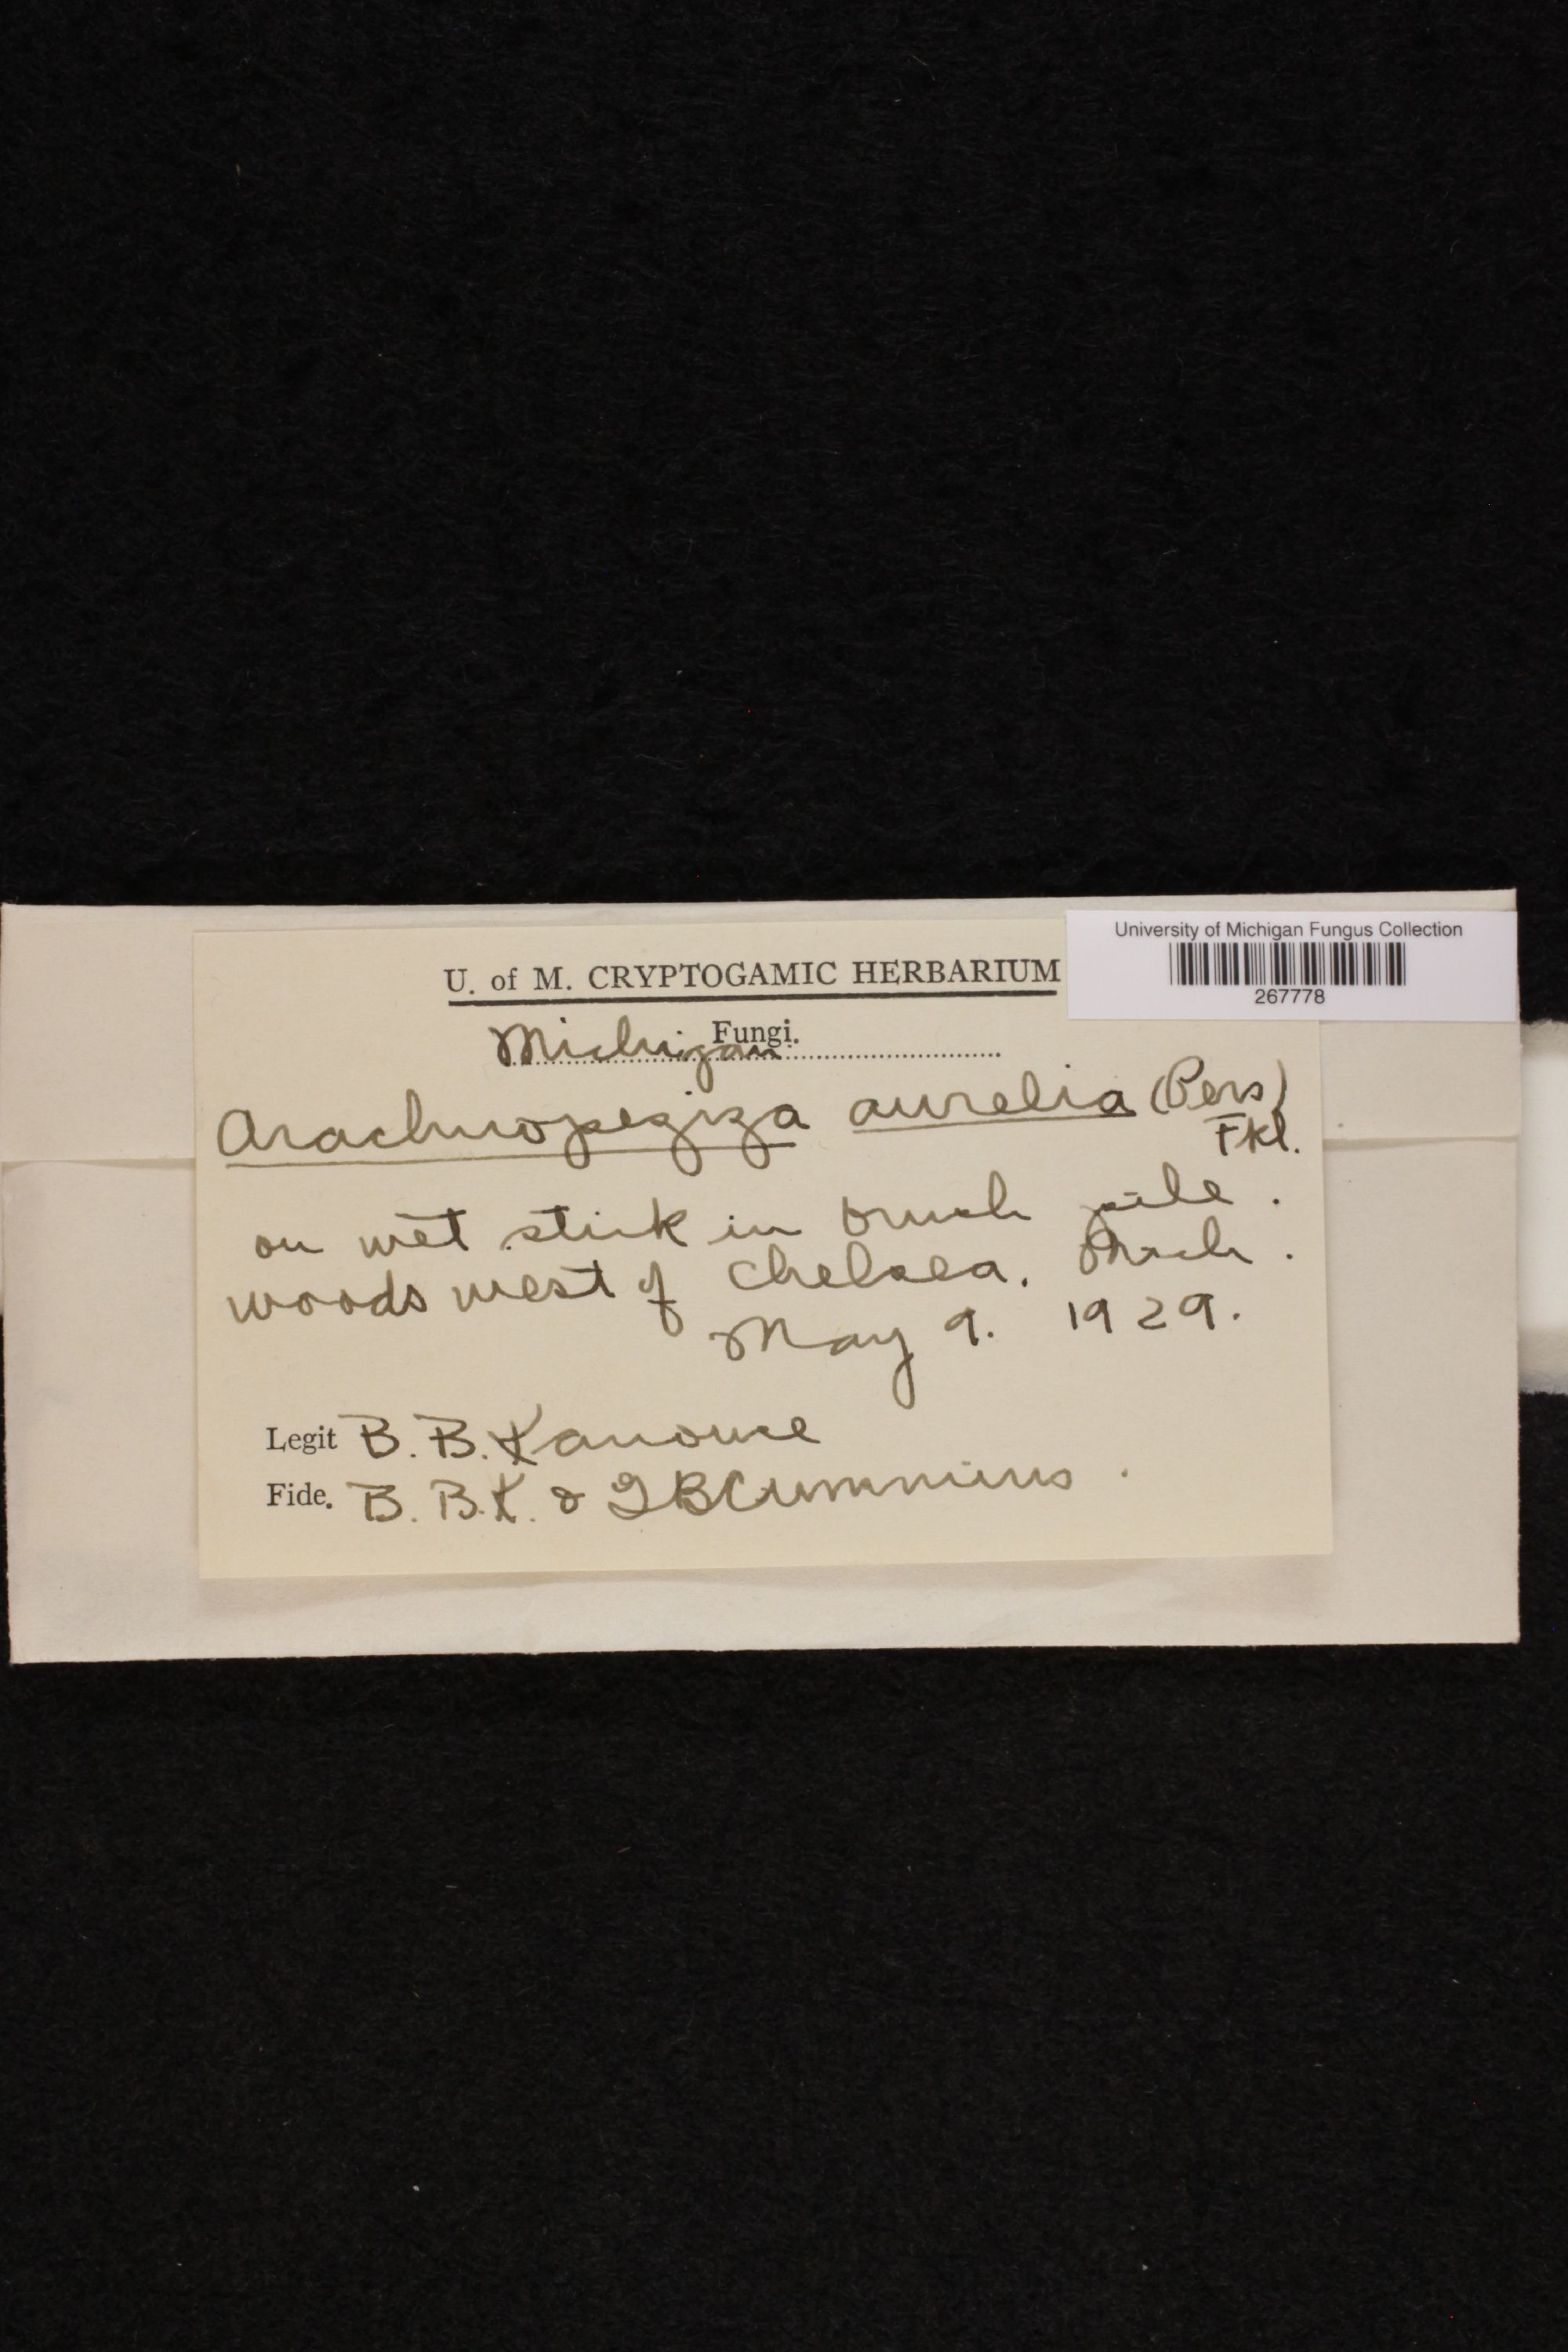 University of Michigan Fungus Collection
267778
U. of M. CRYPTOGAMIC HERBARIUM
Michigan Fungi.
Arachnopeziza aurelia (Pers)
Fkl.
on wet stick in brush pile.
woods west of Chelsea. Mich.
May 9. 1929.
Legit B. B. Kanouse
Fide. B. B. K. & GBCummins.